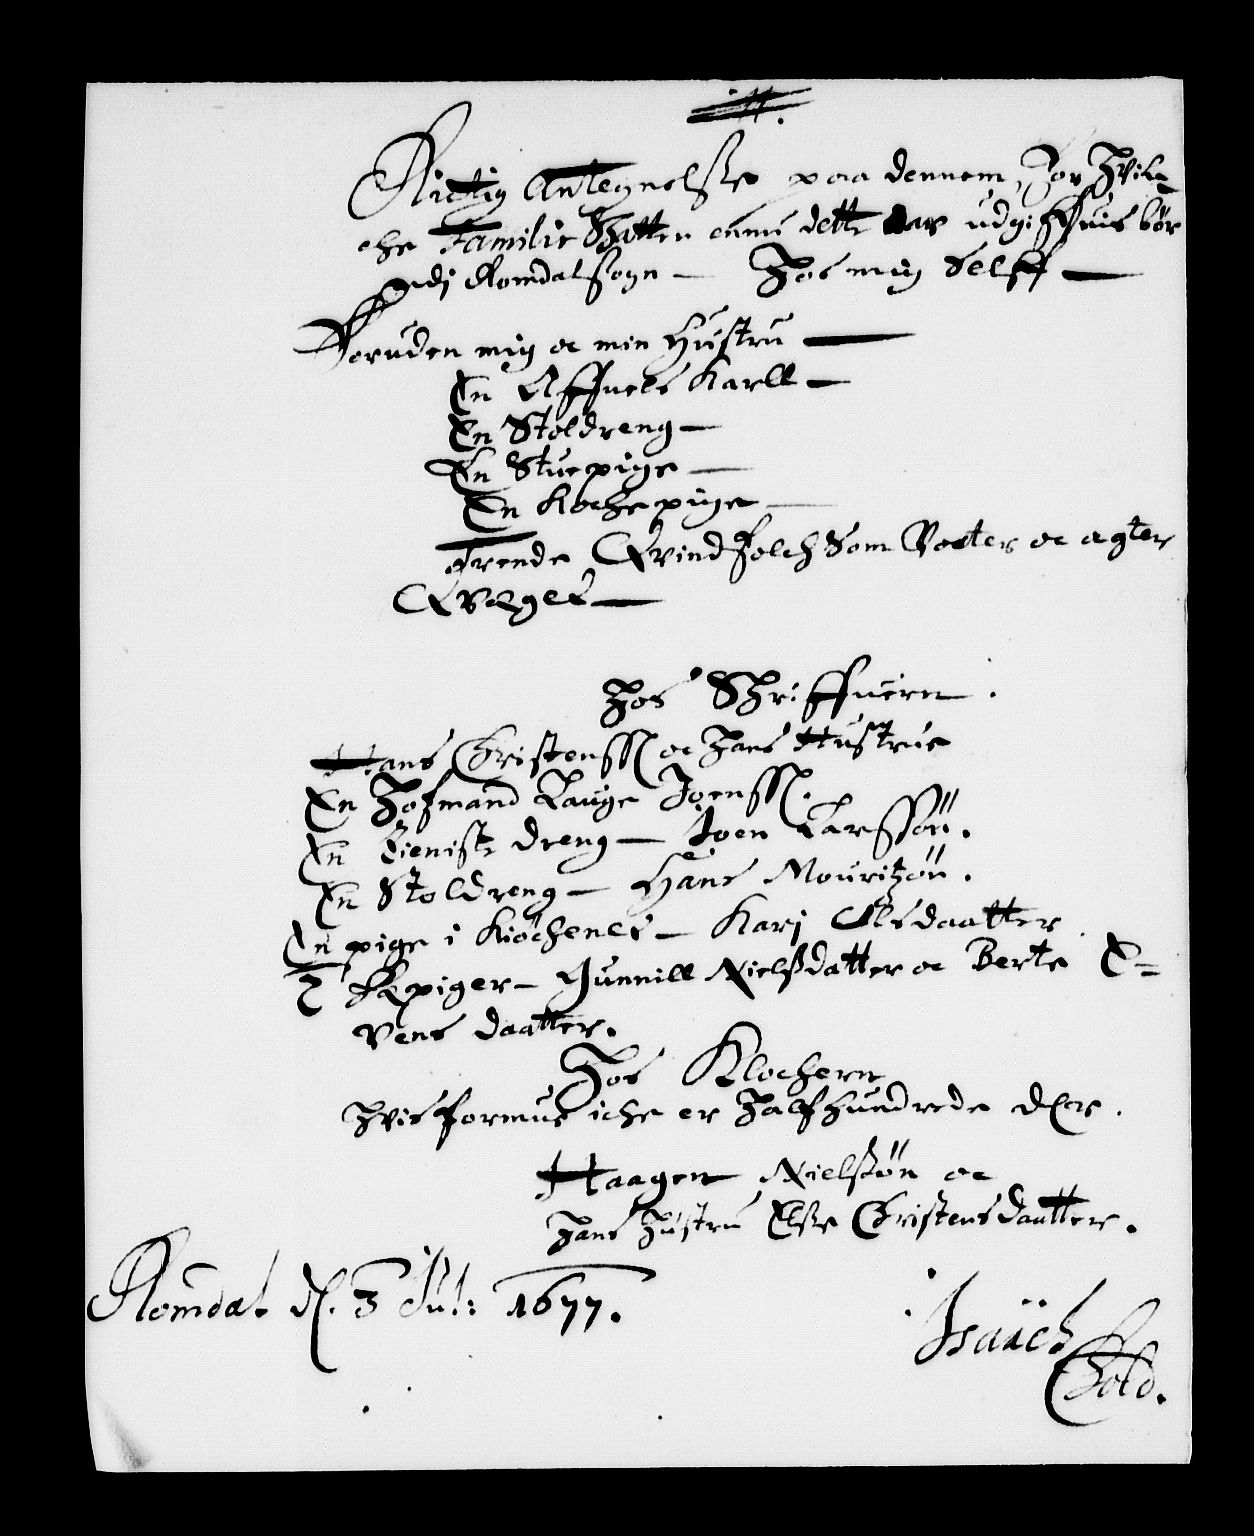 11.
Rictig Antegnelsse paa dennem, for Hvil-
che Familie Skatten ennu dette Aar udgiffuis bør
udj Romdalsogn — Hos mig Selff —
Foruden mig oc min Hustru —
En Affuels Karll —
En Stoldreng —
En Stuepige —
En Kochepige —
Trende Qvindfolch Som Vocter oc agter
Qveget —
Hos Skriffuern.
Hans Christenss: oc hans Hustrue
En Hofmand Lauge Joenss:
En Tieniste dreng — Joen Larssøn.
En Stoldreng — Hans Mouritzøn.
En pige i Kiöchenet — Karj Olsdaatter.
2 Fæpiger — Gunnill Nielssdatter oc Berte E=
vens daatter.
Hos Klochern
Hvis formue iche er Half hundrede dlr.
Haagen Nielssøn oc
Hans Hustru Else Christensdaatter.
Romdal d. 3 Jul: 1677.
Isaach